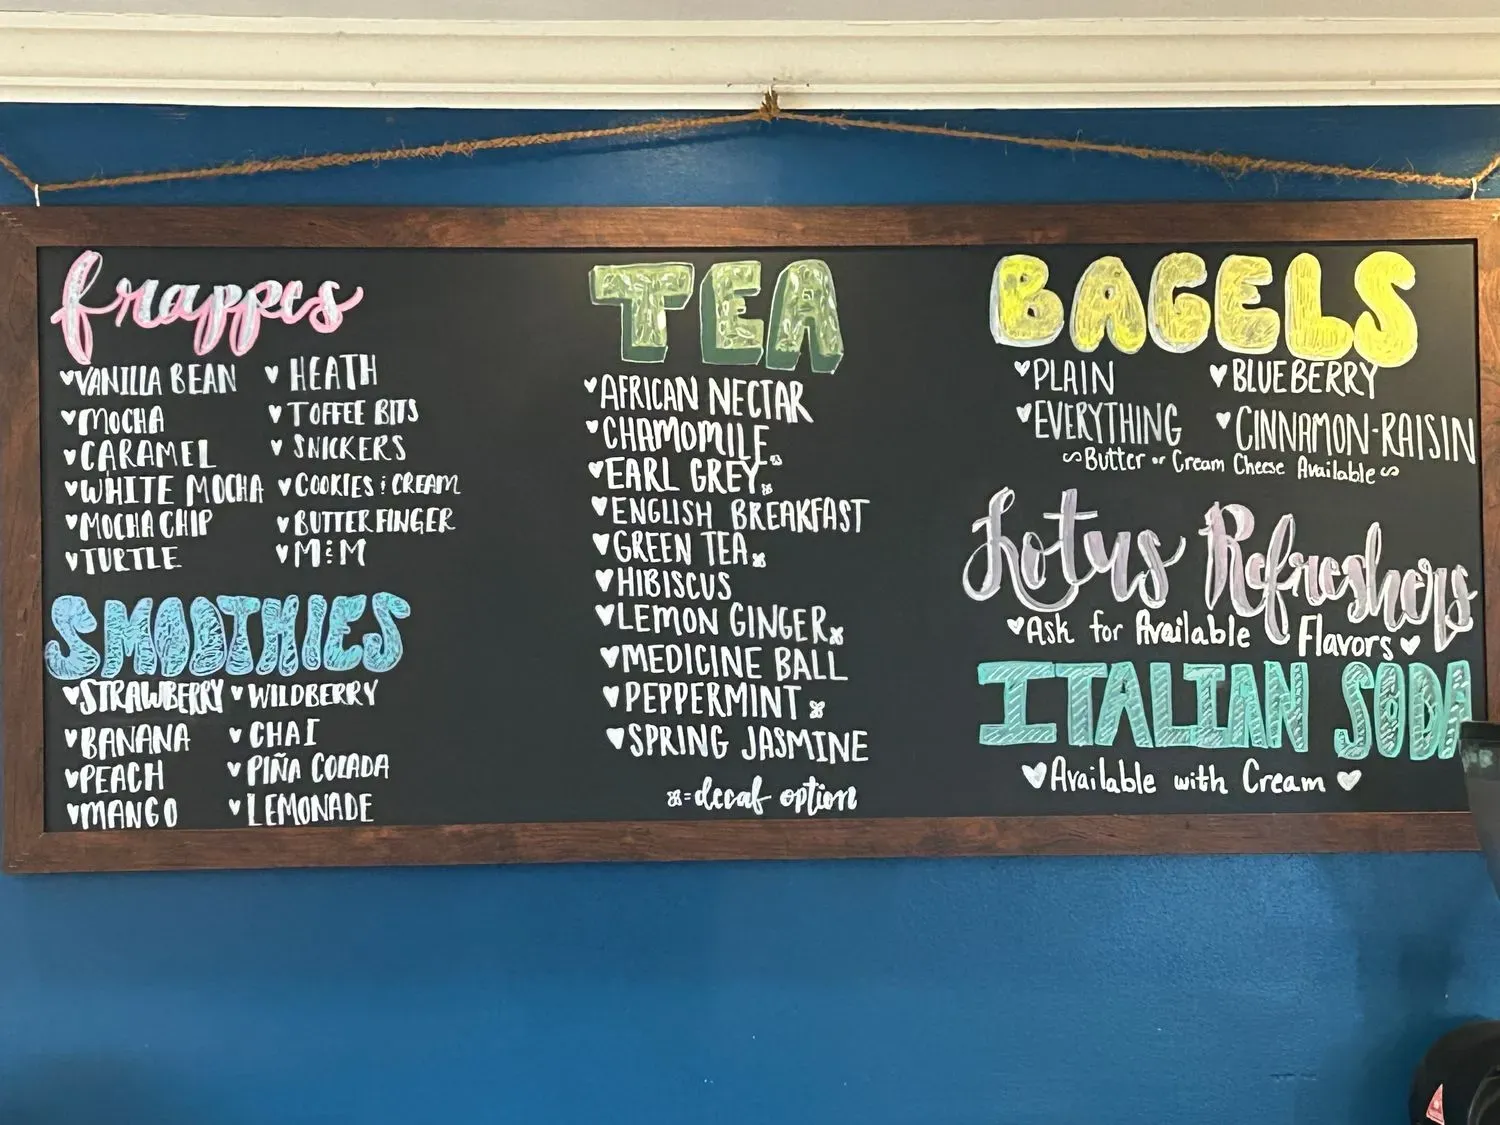 frappes
♥VANILLA BEAN
♥MOCHA
♥CARAMEL
♥WHITE MOCHA
♥MOCHA CHIP
♥TURTLE
♥HEATH
♥TOFFEE BITS
♥SNICKERS
♥COOKIES & CREAM
♥BUTTERFINGER
♥M&M
SMOOTHIES
♥STRAWBERRY
♥BANANA
♥PEACH
♥MANGO
♥WILDBERRY
♥CHAI
♥PIÑA COLADA
♥LEMONADE
TEA
♥AFRICAN NECTAR
♥CHAMOMILE⌘
♥EARL GREY⌘
♥ENGLISH BREAKFAST
♥GREEN TEA⌘
♥HIBISCUS
♥LEMON GINGER⌘
♥MEDICINE BALL
♥PEPPERMINT⌘
♥SPRING JASMINE
⌘=decaf option
BAGELS
♥PLAIN
♥EVERYTHING
♥BLUEBERRY
♥CINNAMON-RAISIN
~Butter or Cream Cheese Available~
Lotus Refreshers
♥Ask for Available Flavors♥
ITALIAN SODA
♥Available with Cream♥